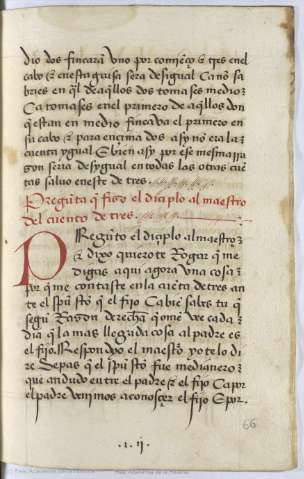 dio dos fincara uno por comieço & tres en el
cabo & en esta guisa sera desigual Ca no sa
bries en ql̃ de aq̃llos dos tomases medio:
Ca tomases en el primero de aq̃llos don
q̃ estan en medio fincava el primero en
su cabo & para encima dos asy no era la
cuenta ygual & bien asy por ese mesma
gon seria desygual en todas las otras cuẽ
tas saluo en este de tres.
Pregũta q̃ fiso el diciplo al maestro
del cuento de tres.
Pregũto el diciplo al maestro
& dixo quierote Rogar q̃ me
digas aqui agora una cosa
por q̃ me contaste en la cuẽta de tres an
te el spũ sto q̃ el fijo Ca bie sabes tu q̃
segũ Rason derecha q̃ ome vee cada
dia q̃ la mas llegada cosa al padre es
el fijo. Respondyo el maestro yo te lo di
re Sepas q̃ el spũ sto fue medianero
que andudo entre el padre & el fijo Ca por
el padre venimos a conosçer el fijo & por
66